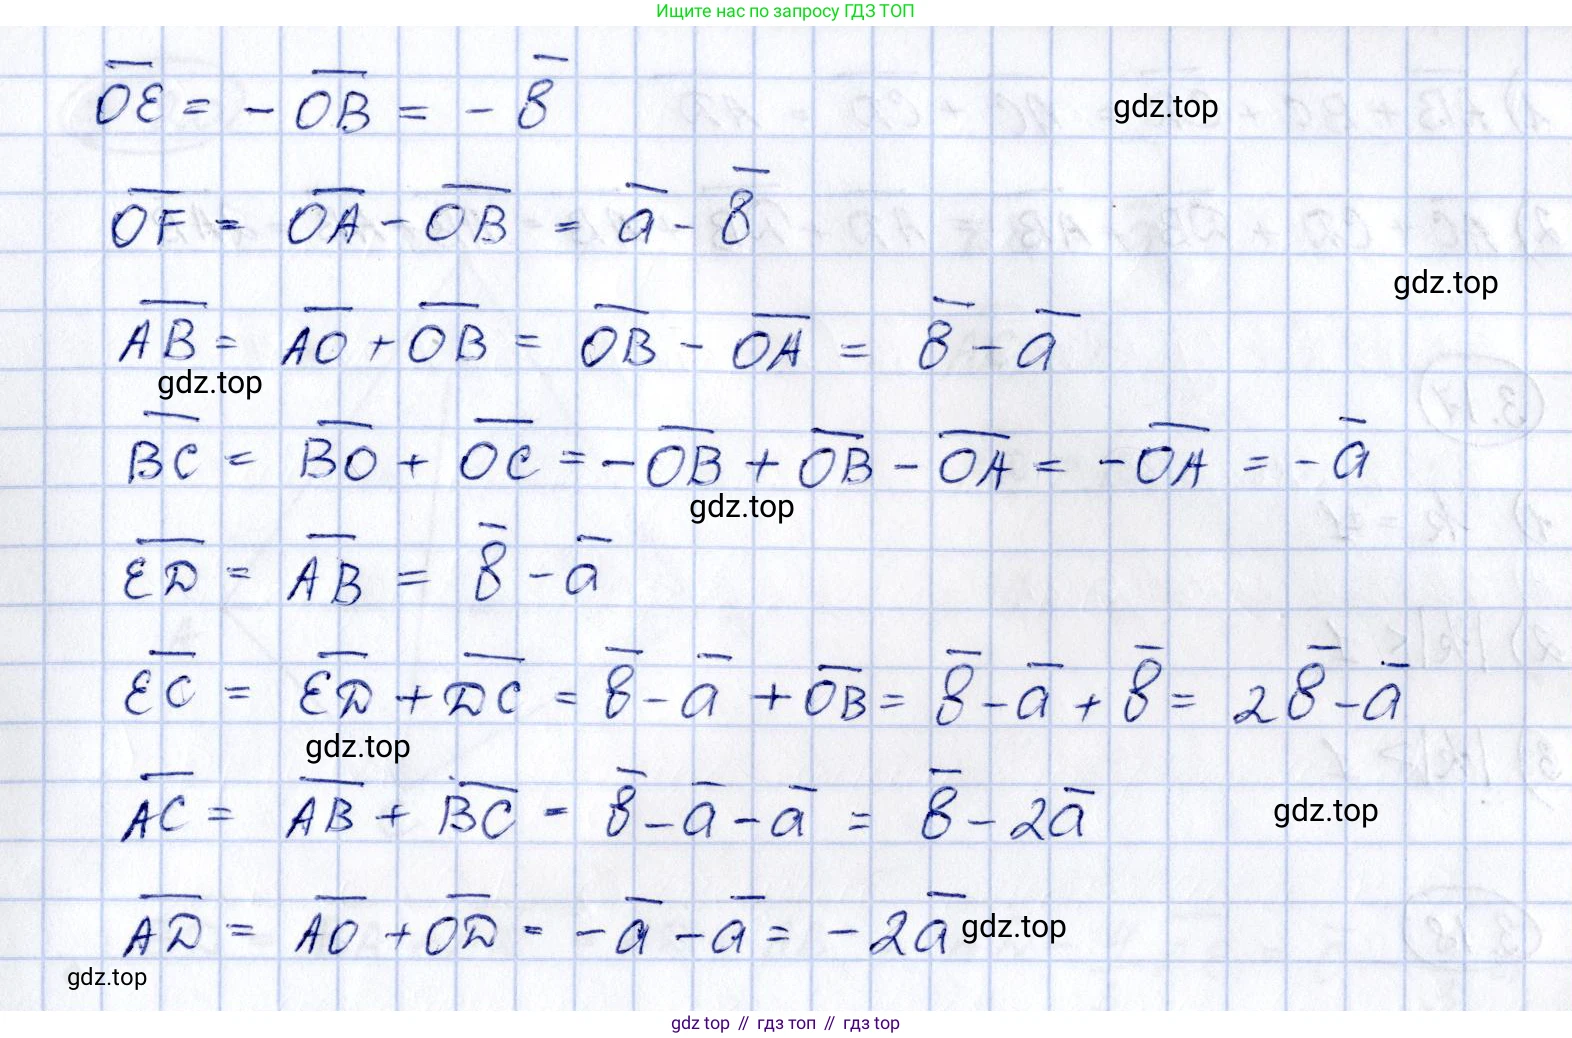 Ищите нас по запросу ГДЗ ТОП
OE = - OB = - в
gdz.top
OF = OA - OB = a - в
gdz.top
AB = AO + OB = OB - OA = в - a
gdz.top
BC = BO + OC = -OB + OB - OA = -OA = -a
gdz.top
ED = AB = в - a
EC = ED + DC = в - a + OB = в - a + в = 2в - a
gdz.top
AC = AB + BC = в - a - a = в - 2a
gdz.top
AD = AO + OD = -a - a = -2a
gdz.top
gdz.top
gdz top // гдз топ // гдз top